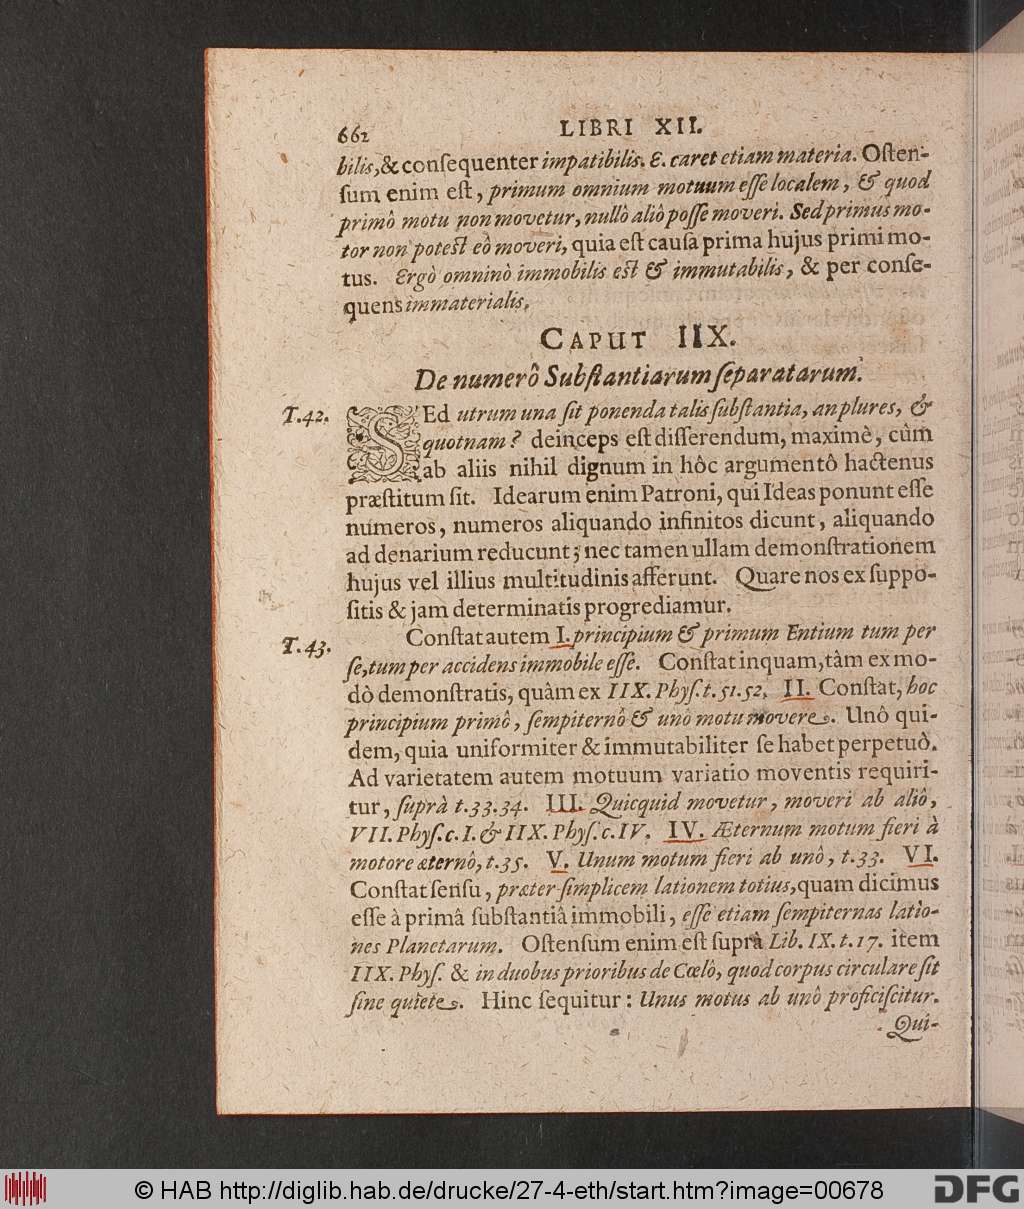 662 LIBRI XII.
bilis, & conſequenter impatibilis. E. caret etiam materia. Oſten-
ſum enim eſt, primum omnium motuum eſſe localem, & quod
primô motu non movetur, nullô aliô poſſe moveri. Sed primus mo-
tor non poteſt eô moveri, quia eſt cauſa prima hujus primi mo-
tus. Ergò omninò immobilis eſt & immutabilis, & per conſe-
quens immaterialis.
CAPUT IIX.
De numerô Subſtantiarum ſeparatarum.
T.42. SEd utrum una ſit ponenda talis ſubſtantia, an plures, &
quotnam? deinceps eſt diſſerendum, maximè, cùm
ab aliis nihil dignum in hôc argumentô hactenus
præſtitum ſit. Idearum enim Patroni, qui Ideas ponunt eſſe
numeros, numeros aliquando infinitos dicunt, aliquando
ad denarium reducunt; nec tamen ullam demonſtrationem
hujus vel illius multitudinis afferunt. Quare nos ex ſuppo-
ſitis & jam determinatis progrediamur.
T.43. Conſtat autem I. principium & primum Entium tum per
ſe, tum per accidens immobile eſſe. Conſtat inquam, tàm ex mo-
dò demonſtratis, quàm ex IIX. Phyſ. t. 51. 52. II. Conſtat, hoc
principium primô, ſempiternô & unô motu movere. Unô qui-
dem, quia uniformiter & immutabiliter ſe habet perpetuò.
Ad varietatem autem motuum variatio moventis requiri-
tur, ſuprà t. 33. 34. III. Quicquid movetur, moveri ab aliô,
VII. Phyſ. c. I. & IIX. Phyſ. c. IV. IV. Æternum motum fieri à
motore æternô, t. 35. V. Unum motum fieri ab unô, t. 33. VI.
Conſtat ſenſu, præter ſimplicem lationem totius, quam dicimus
eſſe à primâ ſubſtantiâ immobili, eſſe etiam ſempiternas latio-
nes Planetarum. Oſtenſum enim eſt ſuprà Lib. IX. t. 17. item
IIX. Phyſ. & in duobus prioribus de Cœlô, quod corpus circulare ſit
ſine quiete. Hinc ſequitur: Unus motus ab unô proficiſcitur.
Qui-
© HAB http://diglib.hab.de/drucke/27-4-eth/start.htm?image=00678
DFG